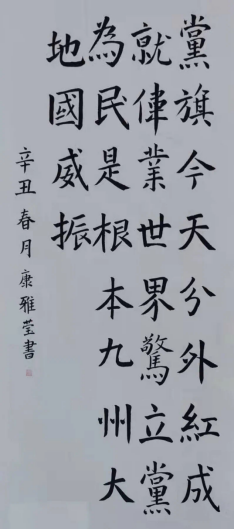 黨旗今天分外紅成
就偉業世界驚立黨
為民是根本九州大
地國威振
辛丑春月康雅莹書